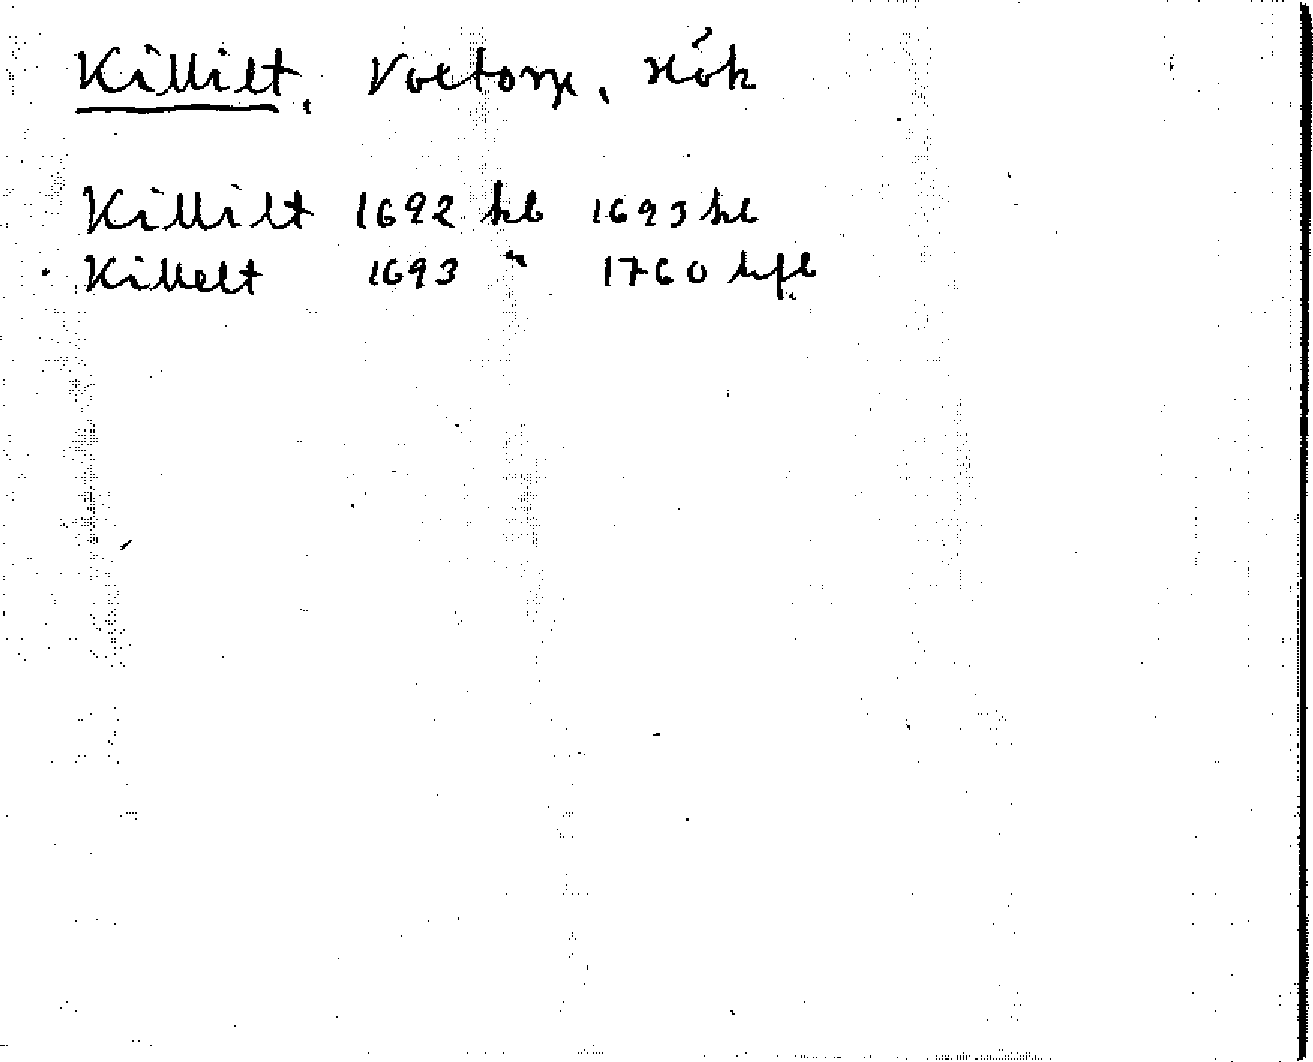 Killilt, Voxtorp, Hök
Killilt 1692 hl 1693 hl
Killelt 1693 " 1760 hfl